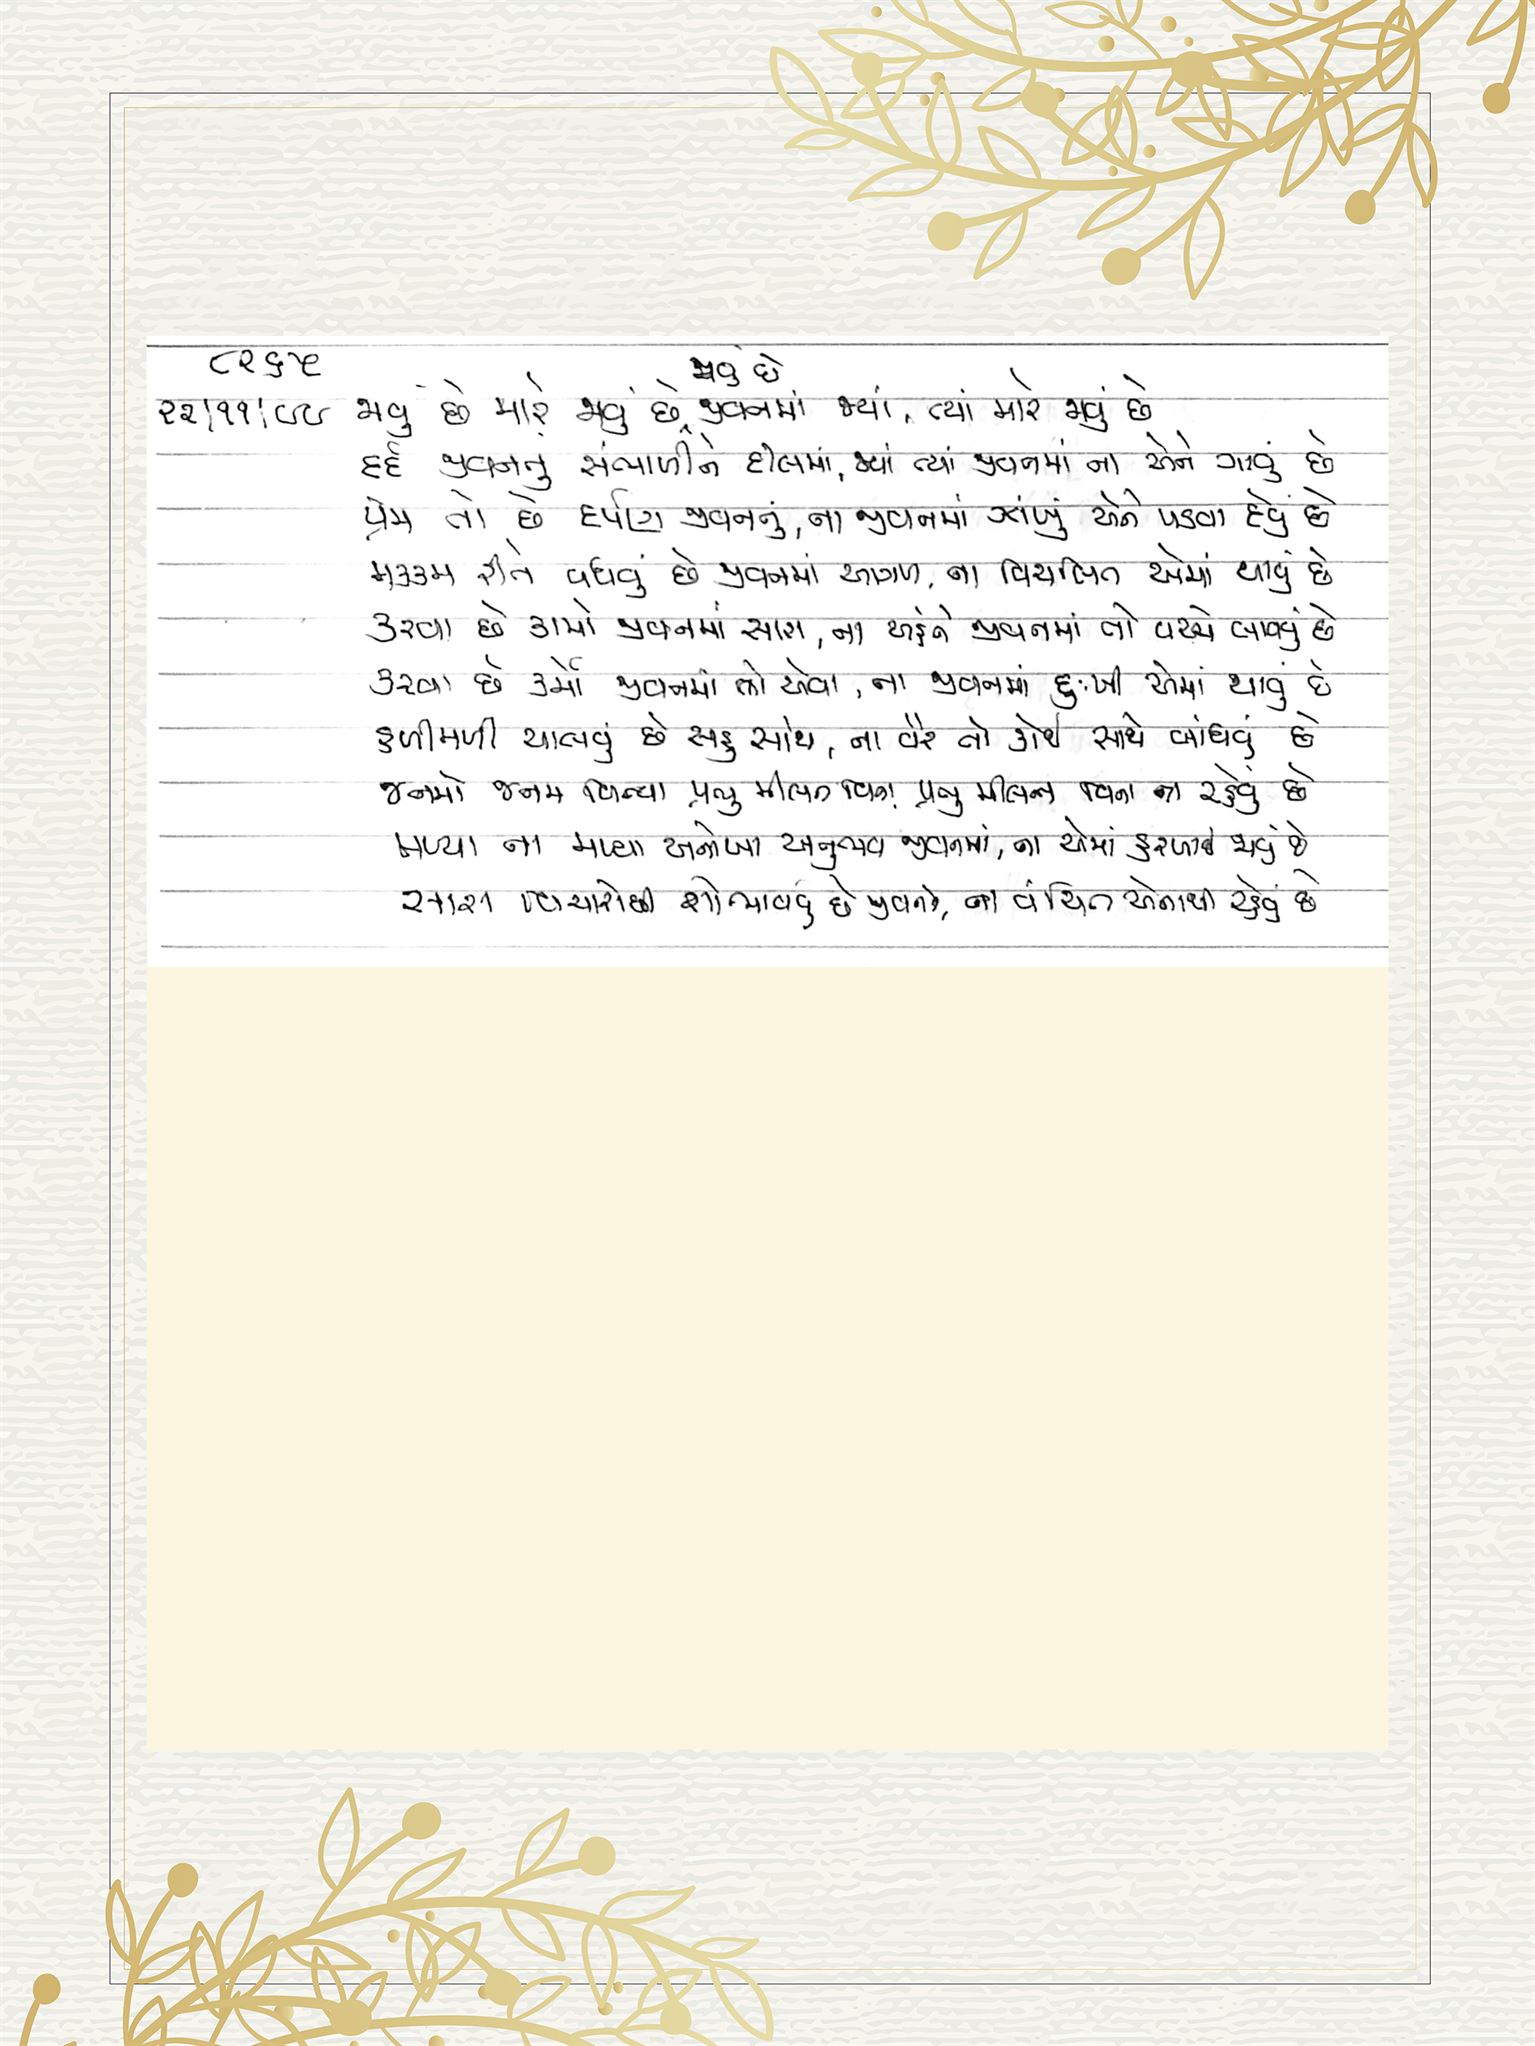 ૮૨૬૫
જાવું છે
૨૨/૧૧/૯૯ જાવું છે મારે જાવું છે, જીવનમાં જ્યાં, ત્યાં મારે જાવું છે
દર્દ જીવનનું સંભાળીને દીલમાં, જ્યાં ત્યાં જીવનમાં ના એને ગાવું છે
પ્રેમ તો છે દર્પણ જીવનનું, ના જીવનમાં ઝાંખું એને પડવા દેવું છે
મક્કમ રીતે વધવું છે જીવનમાં આગળ, ના વિચલિત એમાં થાવું છે
કરવા છે કામો જીવનમાં સારા, ના અહંને જીવનમાં તો વચ્ચે લાવવું છે
કરવા છે કર્મો જીવનમાં તો એવા, ના જીવનમાં દુઃખી એમાં થાવું છે
હળીમળી ચાલવું છે સહુ સાથે, ના વૈર તો કોઈ સાથે બાંધવું છે
જનમો જનમ વિત્યા પ્રભુ મીલન વિના, પ્રભુ મીલન વિના ના રહેવું છે
મળ્યા ના મળ્યા અનોખા અનુભવ જીવનમાં, ના એમાં હરખાઈ જાવું છે
સારા વિચારોથી શોભાવવું છે જીવનને, ના વંચિત એનાથી રહેવું છે